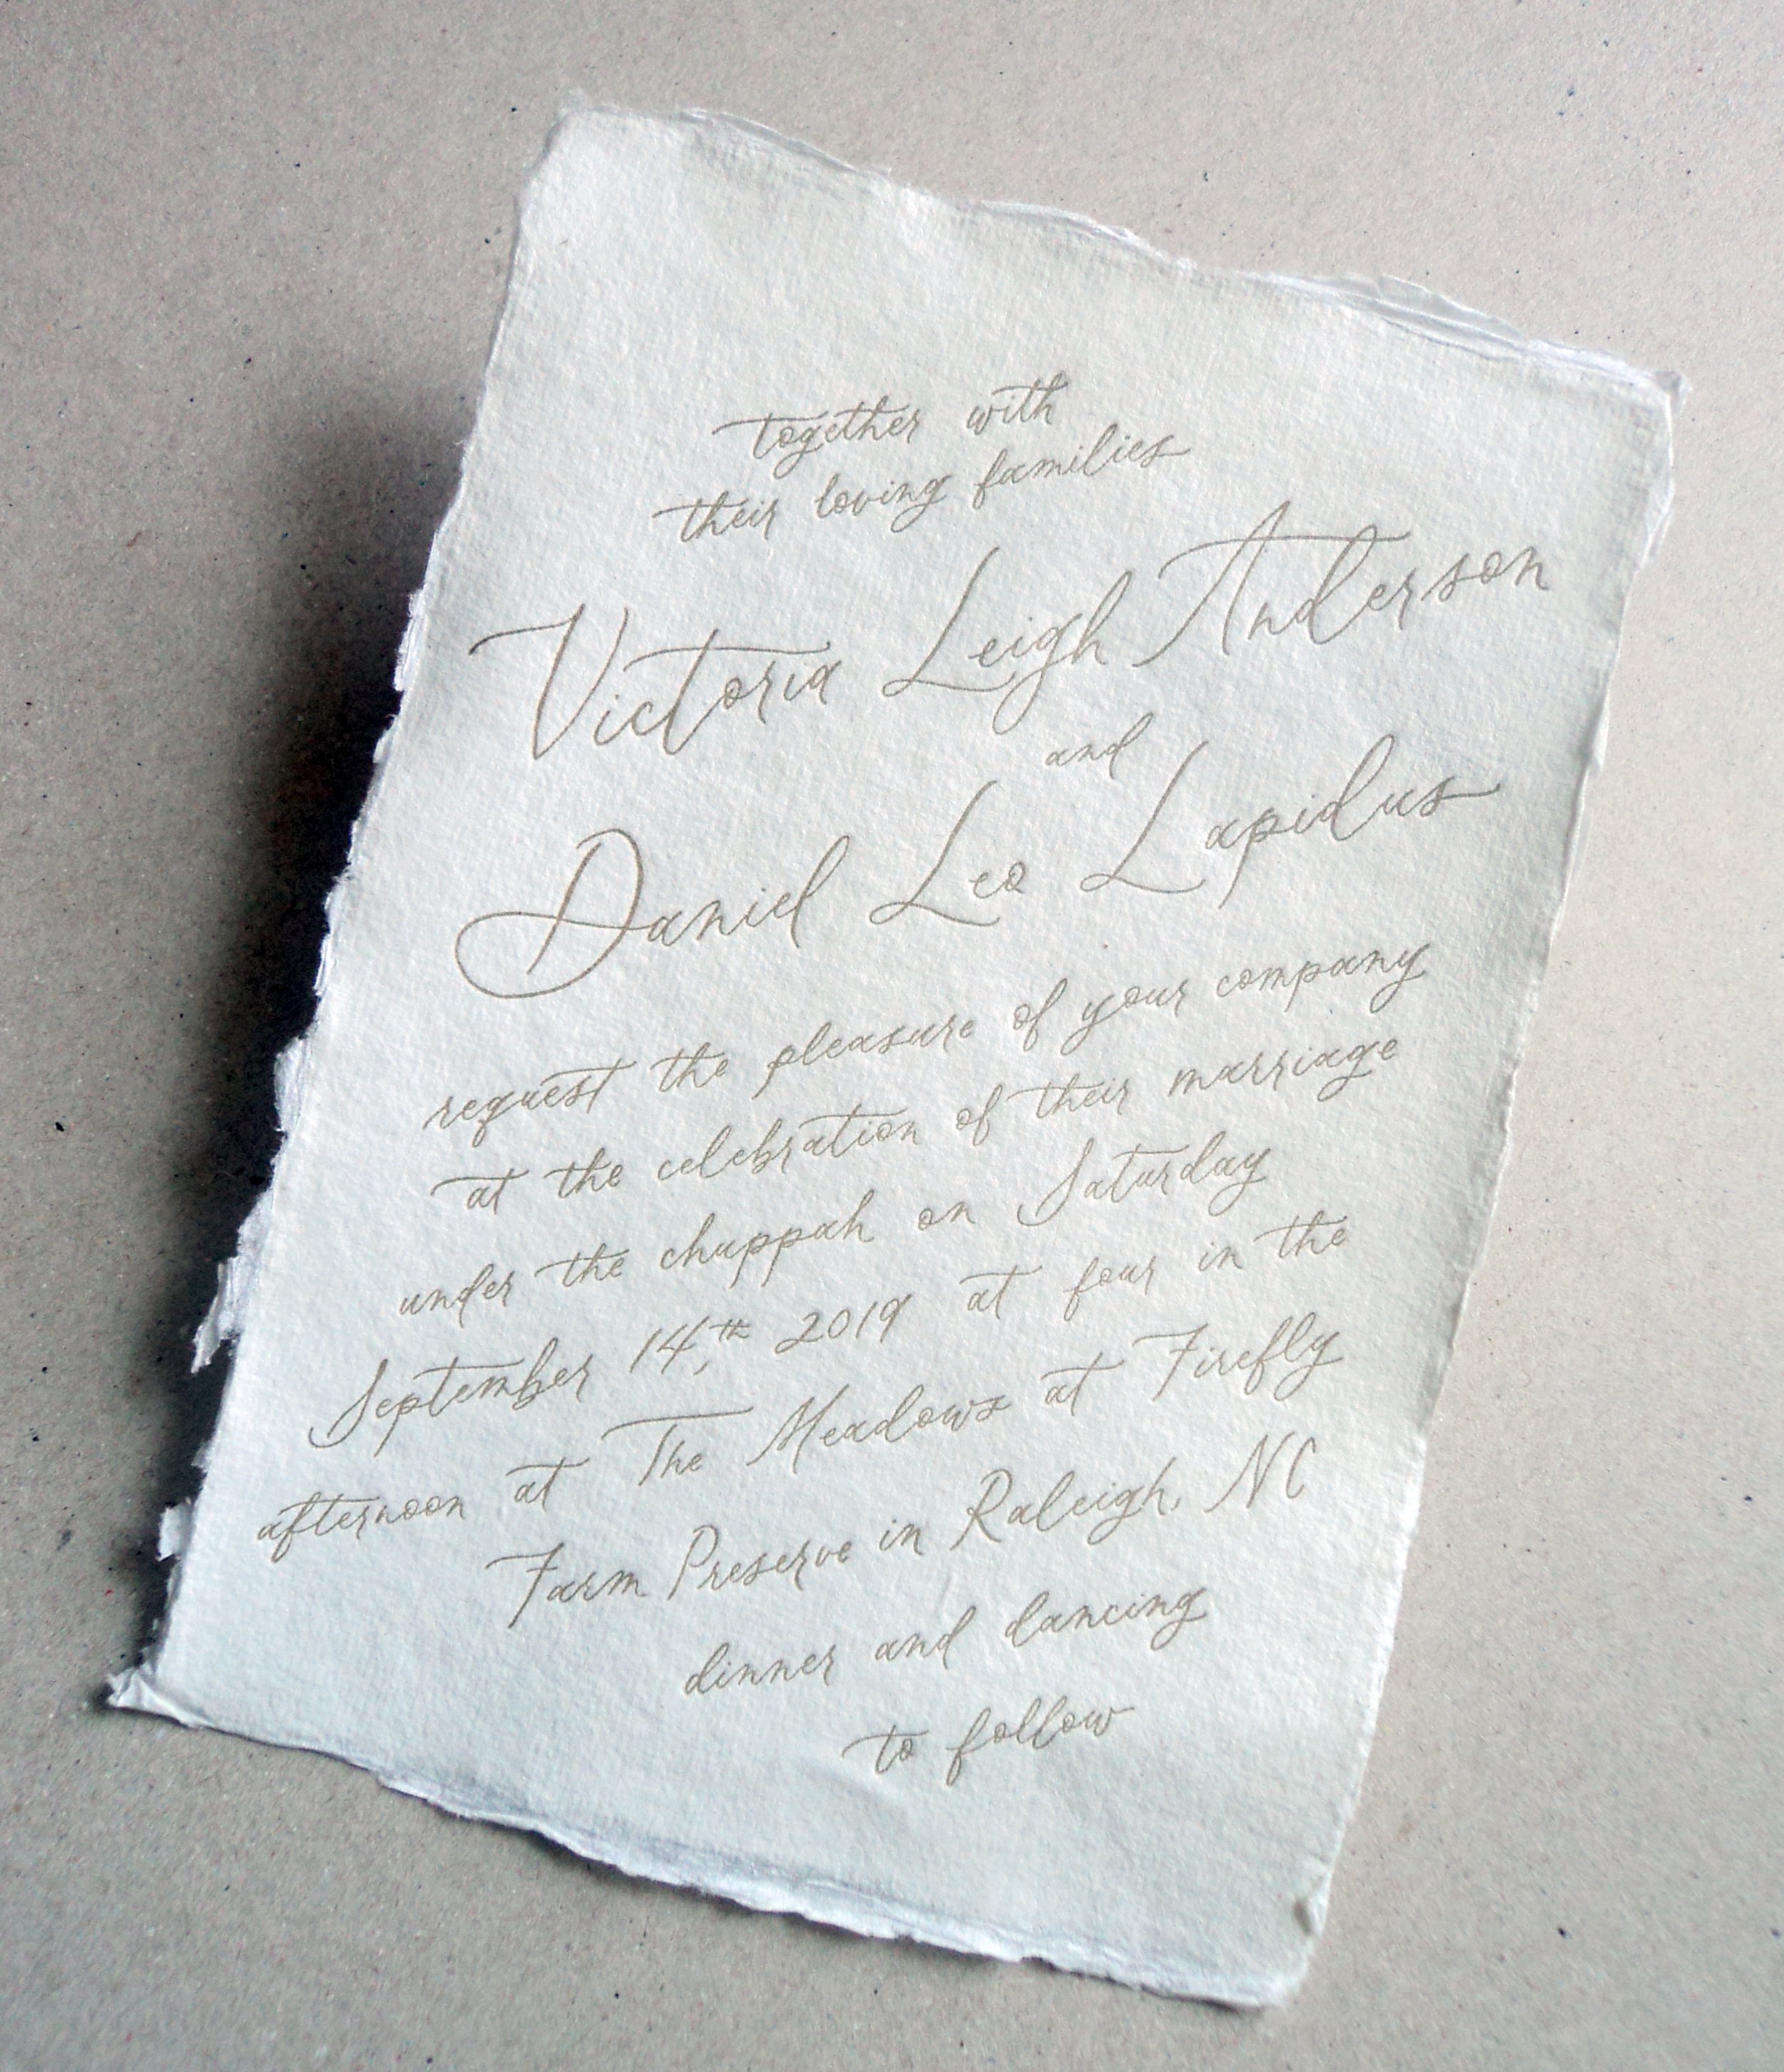 together with
their loving families
Victoria Leigh Anderson
and
Daniel Leo Lapidus
request the pleasure of your company
at the celebration of their marriage
under the chuppah on Saturday
September 14,th 2019 at four in the
afternoon at The Meadows at Firefly
Farm Preserve in Raleigh, NC
dinner and dancing
to follow